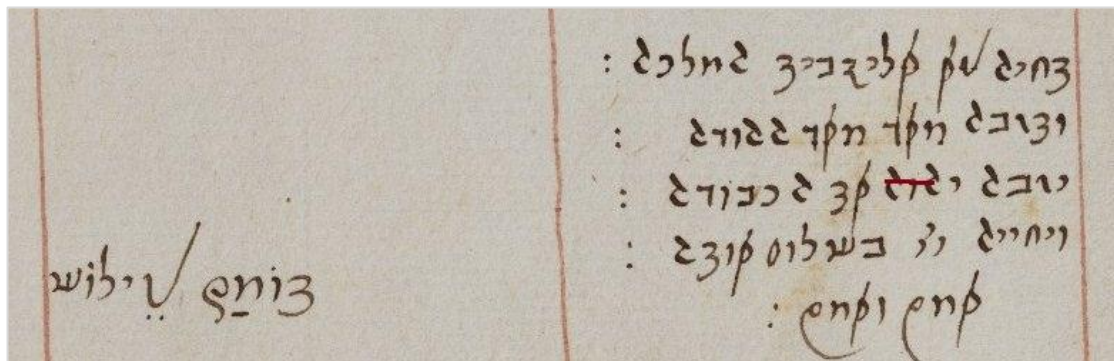 תחיה נא אליזבית המלכה :
ותרבה מאד מאד ההודה :
ירבה יהוה את הכבודה :
ויחייה יי בשלום אותה :
אמן ואמן :
תומַס נֵילוש